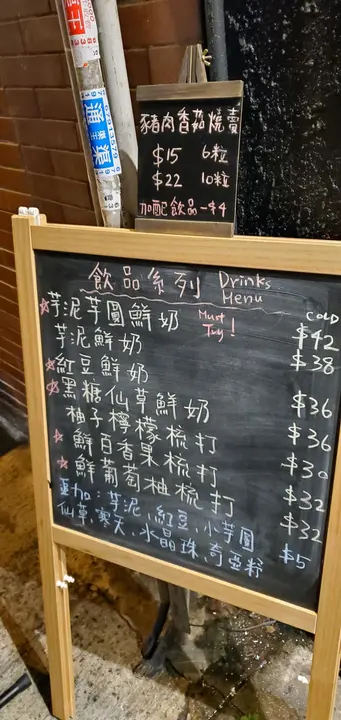 豬肉香菇燒賣
$15 6粒
$22 10粒
加配飲品 -$4
飲品系列 Drinks Menu
COLD
☆芋泥芋圓鮮奶 Must Try! $42
芋泥鮮奶 $38
☆紅豆鮮奶 $36
☆黑糖仙草鮮奶 $36
柚子檸檬梳打 $30
☆鮮百香果梳打 $32
☆鮮葡萄柚梳打 $32
亚加：芋泥、紅豆、小芋圓
仙草、寒天、水晶珠、奇亞籽 $5